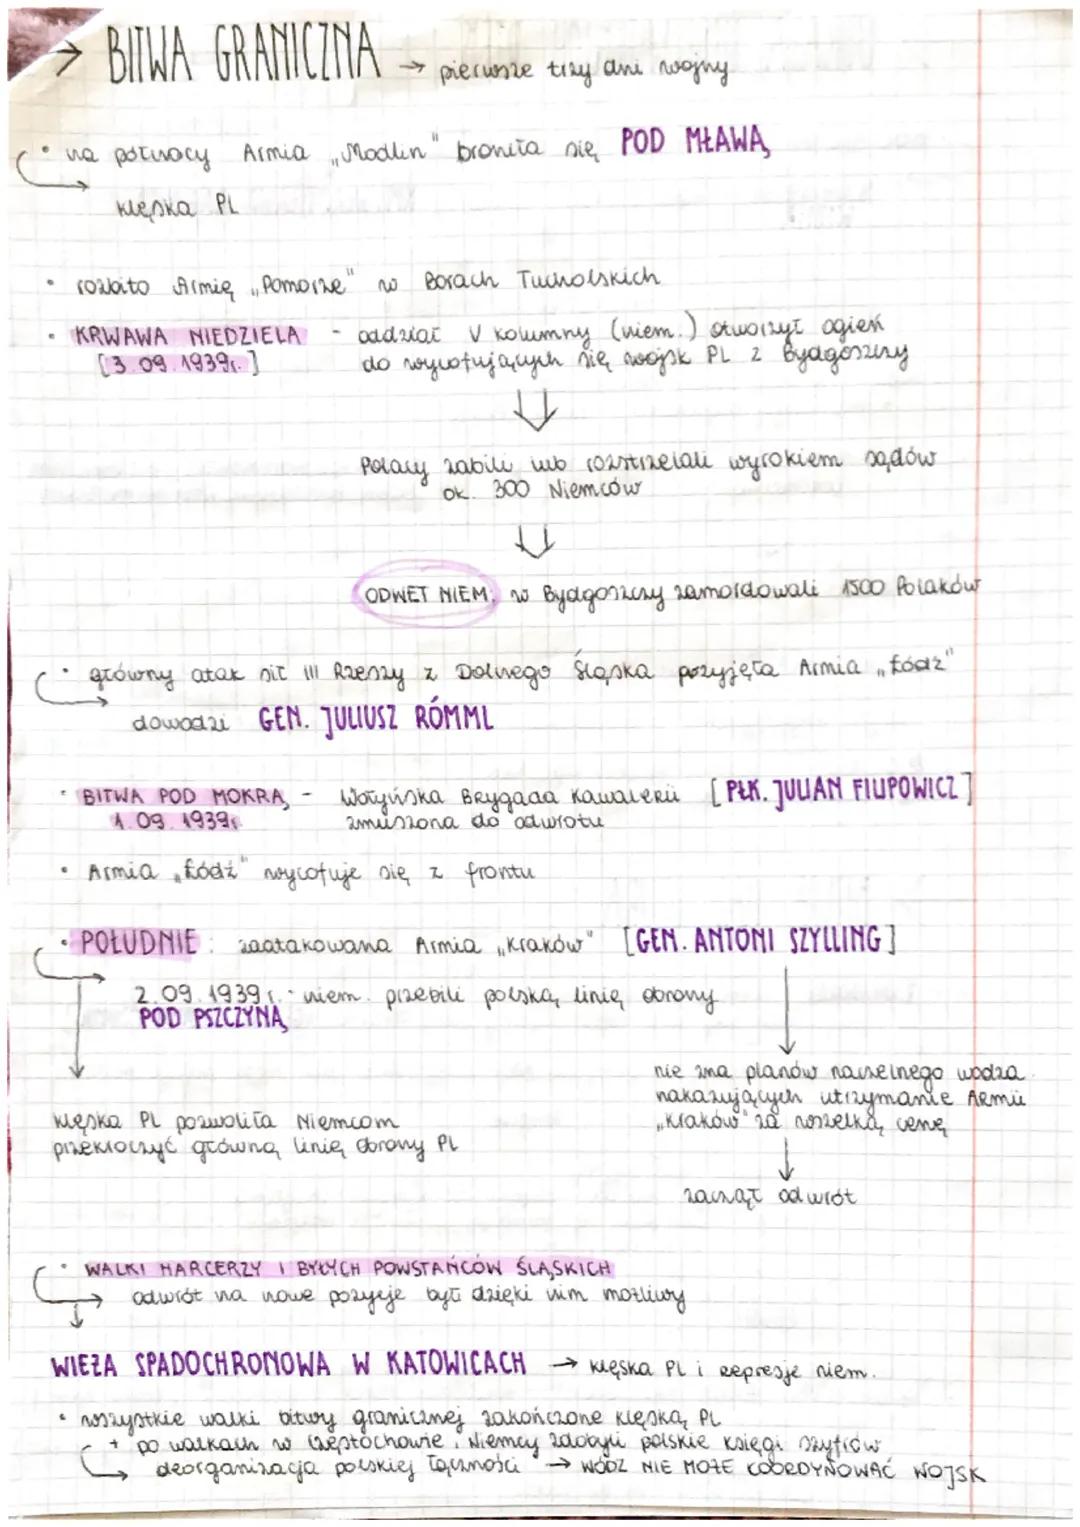 → BITWA GRANICZNA → pierwsze trzy dni wojny
• na północy Armia „Modlin" broniła się POD MŁAWĄ
→ klęska PL
• rozbito Armię „Pomorze" w Borach Tucholskich
• KRWAWA NIEDZIELA - oddział V kolumny (niem.) otworzył ogień
[3.09.1939r.] do wycofujących się wojsk PL z Bydgoszczy
⇓
Polacy zabili lub rozstrzelali wyrokiem sądów
ok. 300 Niemców
⇓
ODWET NIEM: w Bydgoszczy zamordowali 1500 Polaków
• główny atak sił III Rzeszy z Dolnego Śląska przyjęła Armia „Łódź"
→ dowodzi GEN. JULIUSZ RÓMML
• BITWA POD MOKRĄ - Wołyńska Brygada Kawalerii [PŁK. JULIAN FILIPOWICZ]
1.09.1939r. zmuszona do odwrotu
• Armia „Łódź" wycofuje się z frontu
• POŁUDNIE: zaatakowana Armia „Kraków" [GEN. ANTONI SZYLLING]
→ 2.09.1939r. - niem. przebili polską linię obrony
POD PSZCZYNĄ
↓
nie zna planów naczelnego wodza
nakazujących utrzymanie Armii
„Kraków" za wszelką cenę
klęska PL pozwoliła Niemcom
przekroczyć główną linię obrony PL
↓
zaczął odwrót
• WALKI HARCERZY I BYŁYCH POWSTAŃCÓW ŚLĄSKICH
→ odwrót na nowe pozycje był dzięki nim możliwy
↓
WIEŻA SPADOCHRONOWA W KATOWICACH → klęska PL i represje niem.
• wszystkie walki bitwy granicznej zakończone klęską PL
+ po walkach w Częstochowie, Niemcy zdobyli polskie księgi szyfrów
→ deorganizacja polskiej łączności → WÓDZ NIE MOŻE KOORDYNOWAĆ WOJSK